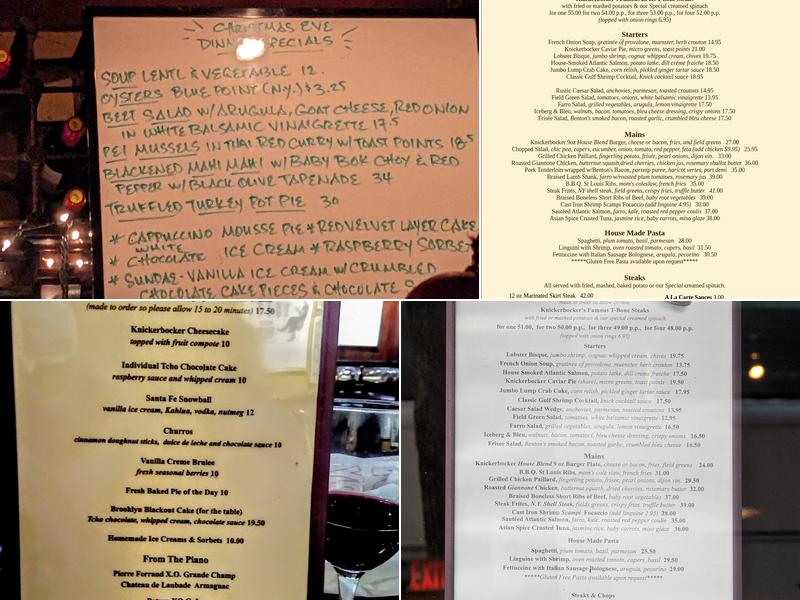 CHRISTMAS EVE
DINNER SPECIALS
SOUP LENTL & VEGETABLE 12.
OYSTERS BLUE POINT (N.Y.) $3.25
BEET SALAD W/ARUGULA, GOAT CHEESE, RED ONION
IN WHITE BALSAMIC VINAIGRETTE 17.5
PEI MUSSELS IN THAI RED CURRY W/TOAST POINTS 18.5
BLACKENED MAHI MAHI W/BABY BOK CHOY & RED
PEPPER W/BLACK OLIVE TAPENADE 34
TRUFFLED TURKEY POT PIE 30
* CAPPUCCINO MOUSSE PIE * RED VELVET LAYER CAKE
* WHITE CHOCOLATE ICE CREAM * RASPBERRY SORBET
* SUNDAE-VANILLA ICE CREAM W/CRUMBLED
CHOCOLATE CAKE PIECES & CHOCOLATE
with fried or mashed potatoes & our Special creamed spinach
for one 55.00 for two 54.00 p.p., for three 53.00 p.p., for four 52.00 p.p.
(topped with onion rings 6.95)
Starters
French Onion Soup, gratinée of provolone, muenster, herb crouton 14.95
Knickerbocker Caviar Pie, micro greens, toast points 21.00
Lobster Bisque, jumbo shrimp, cognac whipped cream, chives 19.50
House-Smoked Atlantic Salmon, potato latke, dill crème fraiche 18.50
Jumbo Lump Crab Cake, corn relish, pickled ginger tartar sauce 18.50
Classic Gulf Shrimp Cocktail, Knick cocktail sauce 18.95
Rustic Caesar Salad, anchovies, parmesan, roasted croutons 14.95
Field Green Salad, tomatoes, onions, white balsamic vinaigrette 13.95
Farro Salad, grilled vegetables, arugula, lemon vinaigrette 17.50
Iceberg & Bleu, walnuts, bacon, tomato, bleu cheese dressing, crispy onions 17.50
Frisée Salad, Benton's smoked bacon, roasted garlic, crumbled bleu cheese 17.50
Mains
Knickerbocker 9oz House Blend Burger, cheese or bacon, fries, and field greens 27.00
Chopped Salad, chic pea, capers, cucumber, onion, tomato, red pepper, feta (add chicken $9.95) 25.95
Grilled Chicken Paillard, fingerling potato, frisée, pearl onions, dijon vin. 33.00
Roasted Giannone Chicken, butternut squash, dried cherries, chicken jus, rosemary shallot butter 36.00
Pork Tenderloin wrapped w/Benton's Bacon, parsnip puree, haricot vertes, port demi 35.00
Braised Lamb Shank, farro w/roasted plum tomatoes, rosemary jus 39.00
B.B.Q. St Louis Ribs, mom's coleslaw, french fries 35.00
Steak Frites, NY shell steak, field greens, crispy fries, truffle butter 41.00
Braised Boneless Short Ribs of Beef, baby root vegetables 39.00
Cast Iron Shrimp Scampi Focaccio (add linguine 4.95) 30.00
Sautéed Atlantic Salmon, farro, kale, roasted red pepper coulis 37.00
Asian Spice Crusted Tuna, jasmine rice, baby carrots, miso glaze 38.00
House Made Pasta
Spaghetti, plum tomato, basil, parmesan 28.00
Linguini with Shrimp, oven roasted tomato, capers, basil 31.50
Fettuccine with Italian Sausage Bolognese, arugula, pecorino 30.50
*****Gluten Free Pasta available upon request*****
Steaks
All served with fried, mashed, baked potato or our Special creamed spinach.
12 oz Marinated Skirt Steak 42.00 A La Carte Sauces 3.00
(made to order so please allow 15 to 20 minutes) 17.50
Knickerbocker Cheesecake
topped with fruit compote 10
Individual Tcho Chocolate Cake
raspberry sauce and whipped cream 10
Santa Fe Snowball
vanilla ice cream, Kahlua, vodka, nutmeg 12
Churros
cinnamon doughnut sticks, dulce de leche and chocolate sauce 10
Vanilla Creme Brulee
fresh seasonal berries 10
Fresh Baked Pie of the Day 10
Brooklyn Blackout Cake (for the table)
Tcho chocolate, whipped cream, chocolate sauce 19.50
Homemade Ice Creams & Sorbets 10.00
From The Piano
Pierre Ferrand X.O. Grande Champ
Chateau de Laubade Armagnac
Knickerbocker's Famous T-Bone Steaks
with fried or mashed potatoes & our special creamed spinach
for one 51.00, for two 50.00 p.p., for three 49.00 p.p., for four 48.00 p.p.
(topped with onion rings 6.95)
Starters
Lobster Bisque, jumbo shrimp, cognac whipped cream, chives 19.75
French Onion Soup, gratinée of provolone, muenster, herb crouton 13.75
House Smoked Atlantic Salmon, potato latke, dill creme fraiche 17.50
Knickerbocker Caviar Pie (share), micro greens, toast points 19.50
Jumbo Lump Crab Cake, corn relish, pickled ginger tartar sauce 17.95
Classic Gulf Shrimp Cocktail, knick cocktail sauce 17.50
Caesar Salad Wedge, anchovies, parmesan, roasted croutons 13.95
Field Green Salad, tomatoes, white balsamic vinaigrette 12.95
Farro Salad, grilled vegetables, arugula, lemon vinaigrette 16.50
Iceberg & Bleu, walnuts, bacon, tomatoes, bleu cheese dressing, crispy onions 16.50
Frisée Salad, Benton's smoked bacon, roasted garlic, crumbled bleu cheese 16.50
Mains
Knickerbocker House Blend 9 oz Burger Plate, cheese or bacon, fries, field greens 24.00
B.B.Q. St Louis Ribs, mom's cole slaw, french fries 31.00
Grilled Chicken Paillard, fingerling potato, frisee, pearl onions, dijon vin. 29.50
Roasted Giannone Chicken, butternut squash, dried cherries, rosemary butter 32.00
Braised Boneless Short Ribs of Beef, baby root vegetables 37.00
Steak Frites, N.Y. Shell Steak, fields greens, crispy fries, truffle butter 39.00
Cast Iron Shrimp Scampi Focaccio (add linguine 2.95) 28.00
Sautéed Atlantic Salmon, farro, kale, roasted red pepper coulis 35.00
Asian Spice Crusted Tuna, jasmine rice, baby carrots, miso glaze 36.00
House Made Pasta
Spaghetti, plum tomato, basil, parmesan 25.50
Linguine with Shrimp, oven roasted tomato, capers, basil 29.50
Fettuccine with Italian Sausage Bolognese, arugula, pecorino 29.00
*****Gluten Free Pasta available upon request*****
Steaks & Chops
EXIT